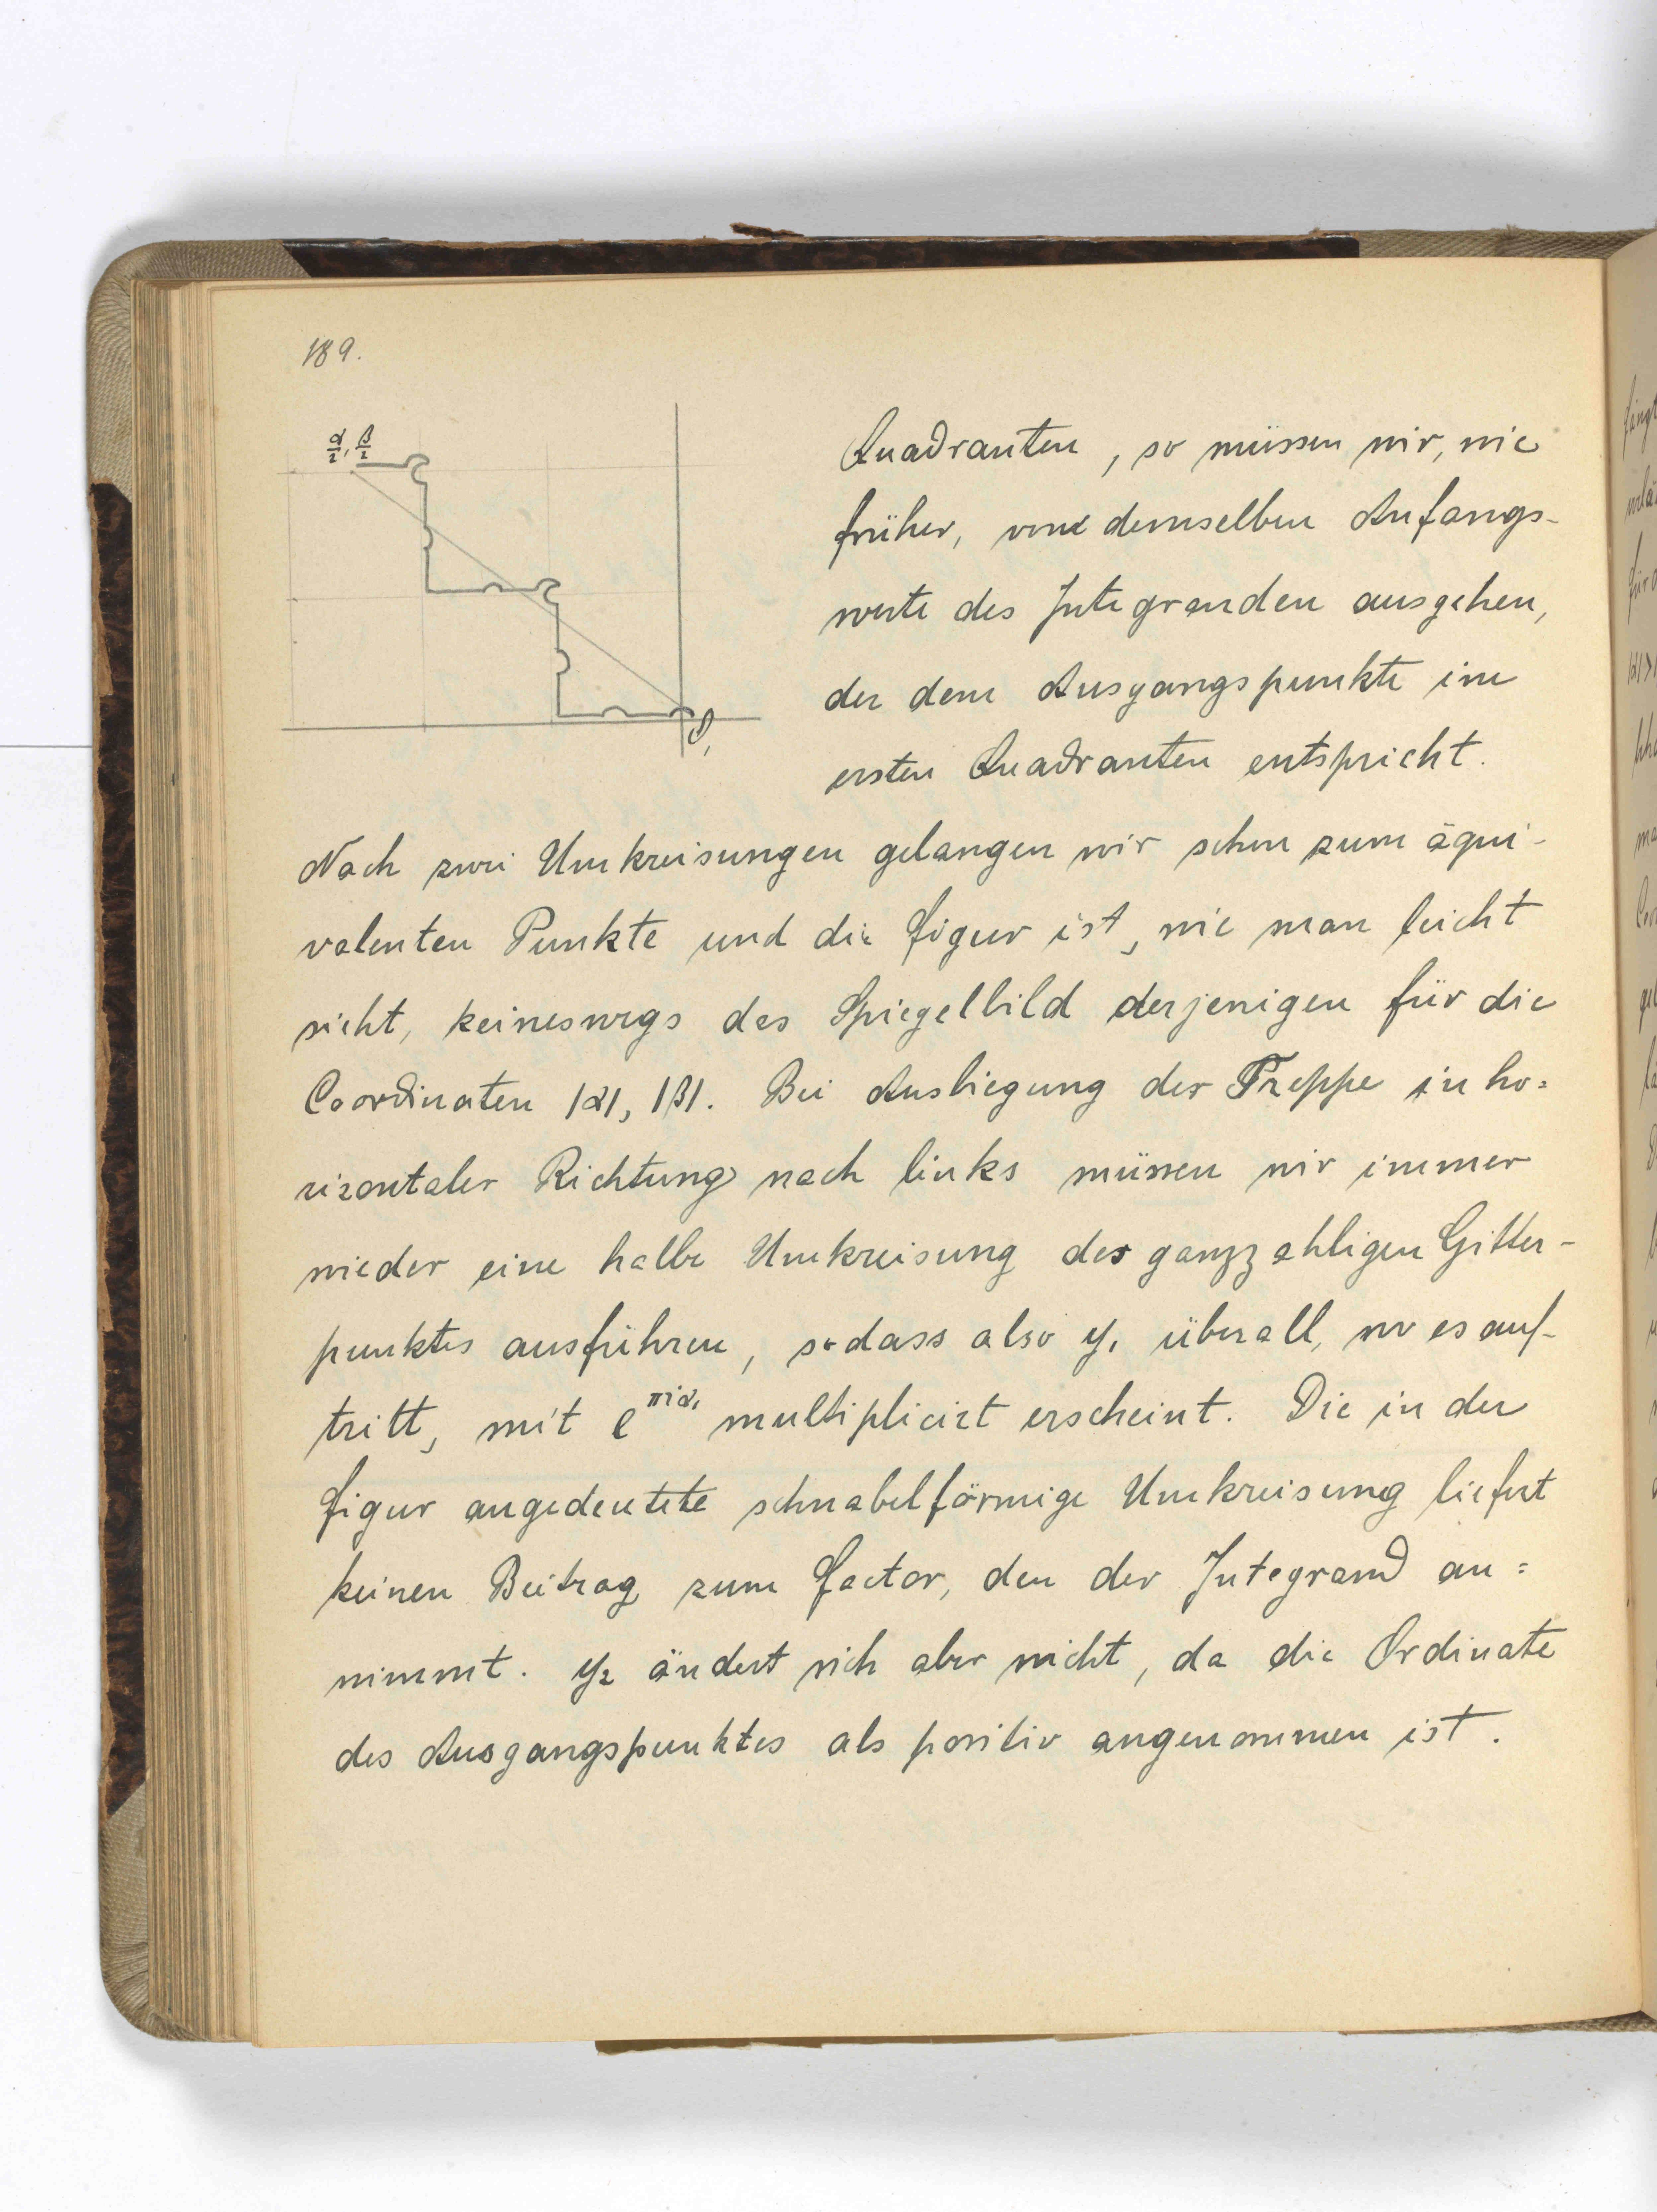 189.
α/2, β/2
O,
Quadranten, so müssen wir, wie
früher, von demselben Anfangs-
werte des Integranden ausgehen,
der dem Ausgangspunkte im
ersten Quadranten entspricht.
Nach zwei Umkreisungen gelangen wir schon zum äqui-
valenten Punkte und die Figur ist, wie man leicht
sieht, keineswegs das Spiegelbild derjenigen für die
Coordinaten |α|, |β|. Bei Ausbiegung der Treppe in ho=
rizontaler Richtung nach links müssen wir immer
wieder eine halbe Umkreisung des ganzzahligen Gitter-
punktes ausführen, sodass also y₁ überall, wo es auf-
tritt, mit e^πiα₁ multiplicirt erscheint. Die in der
Figur angedeutete schnabelförmige Umkreisung liefert
keinen Beitrag zum Factor, den der Integrand an=
nimmt. y₂ ändert sich aber nicht, da die Ordinate
des Ausgangspunktes als positiv angenommen ist.